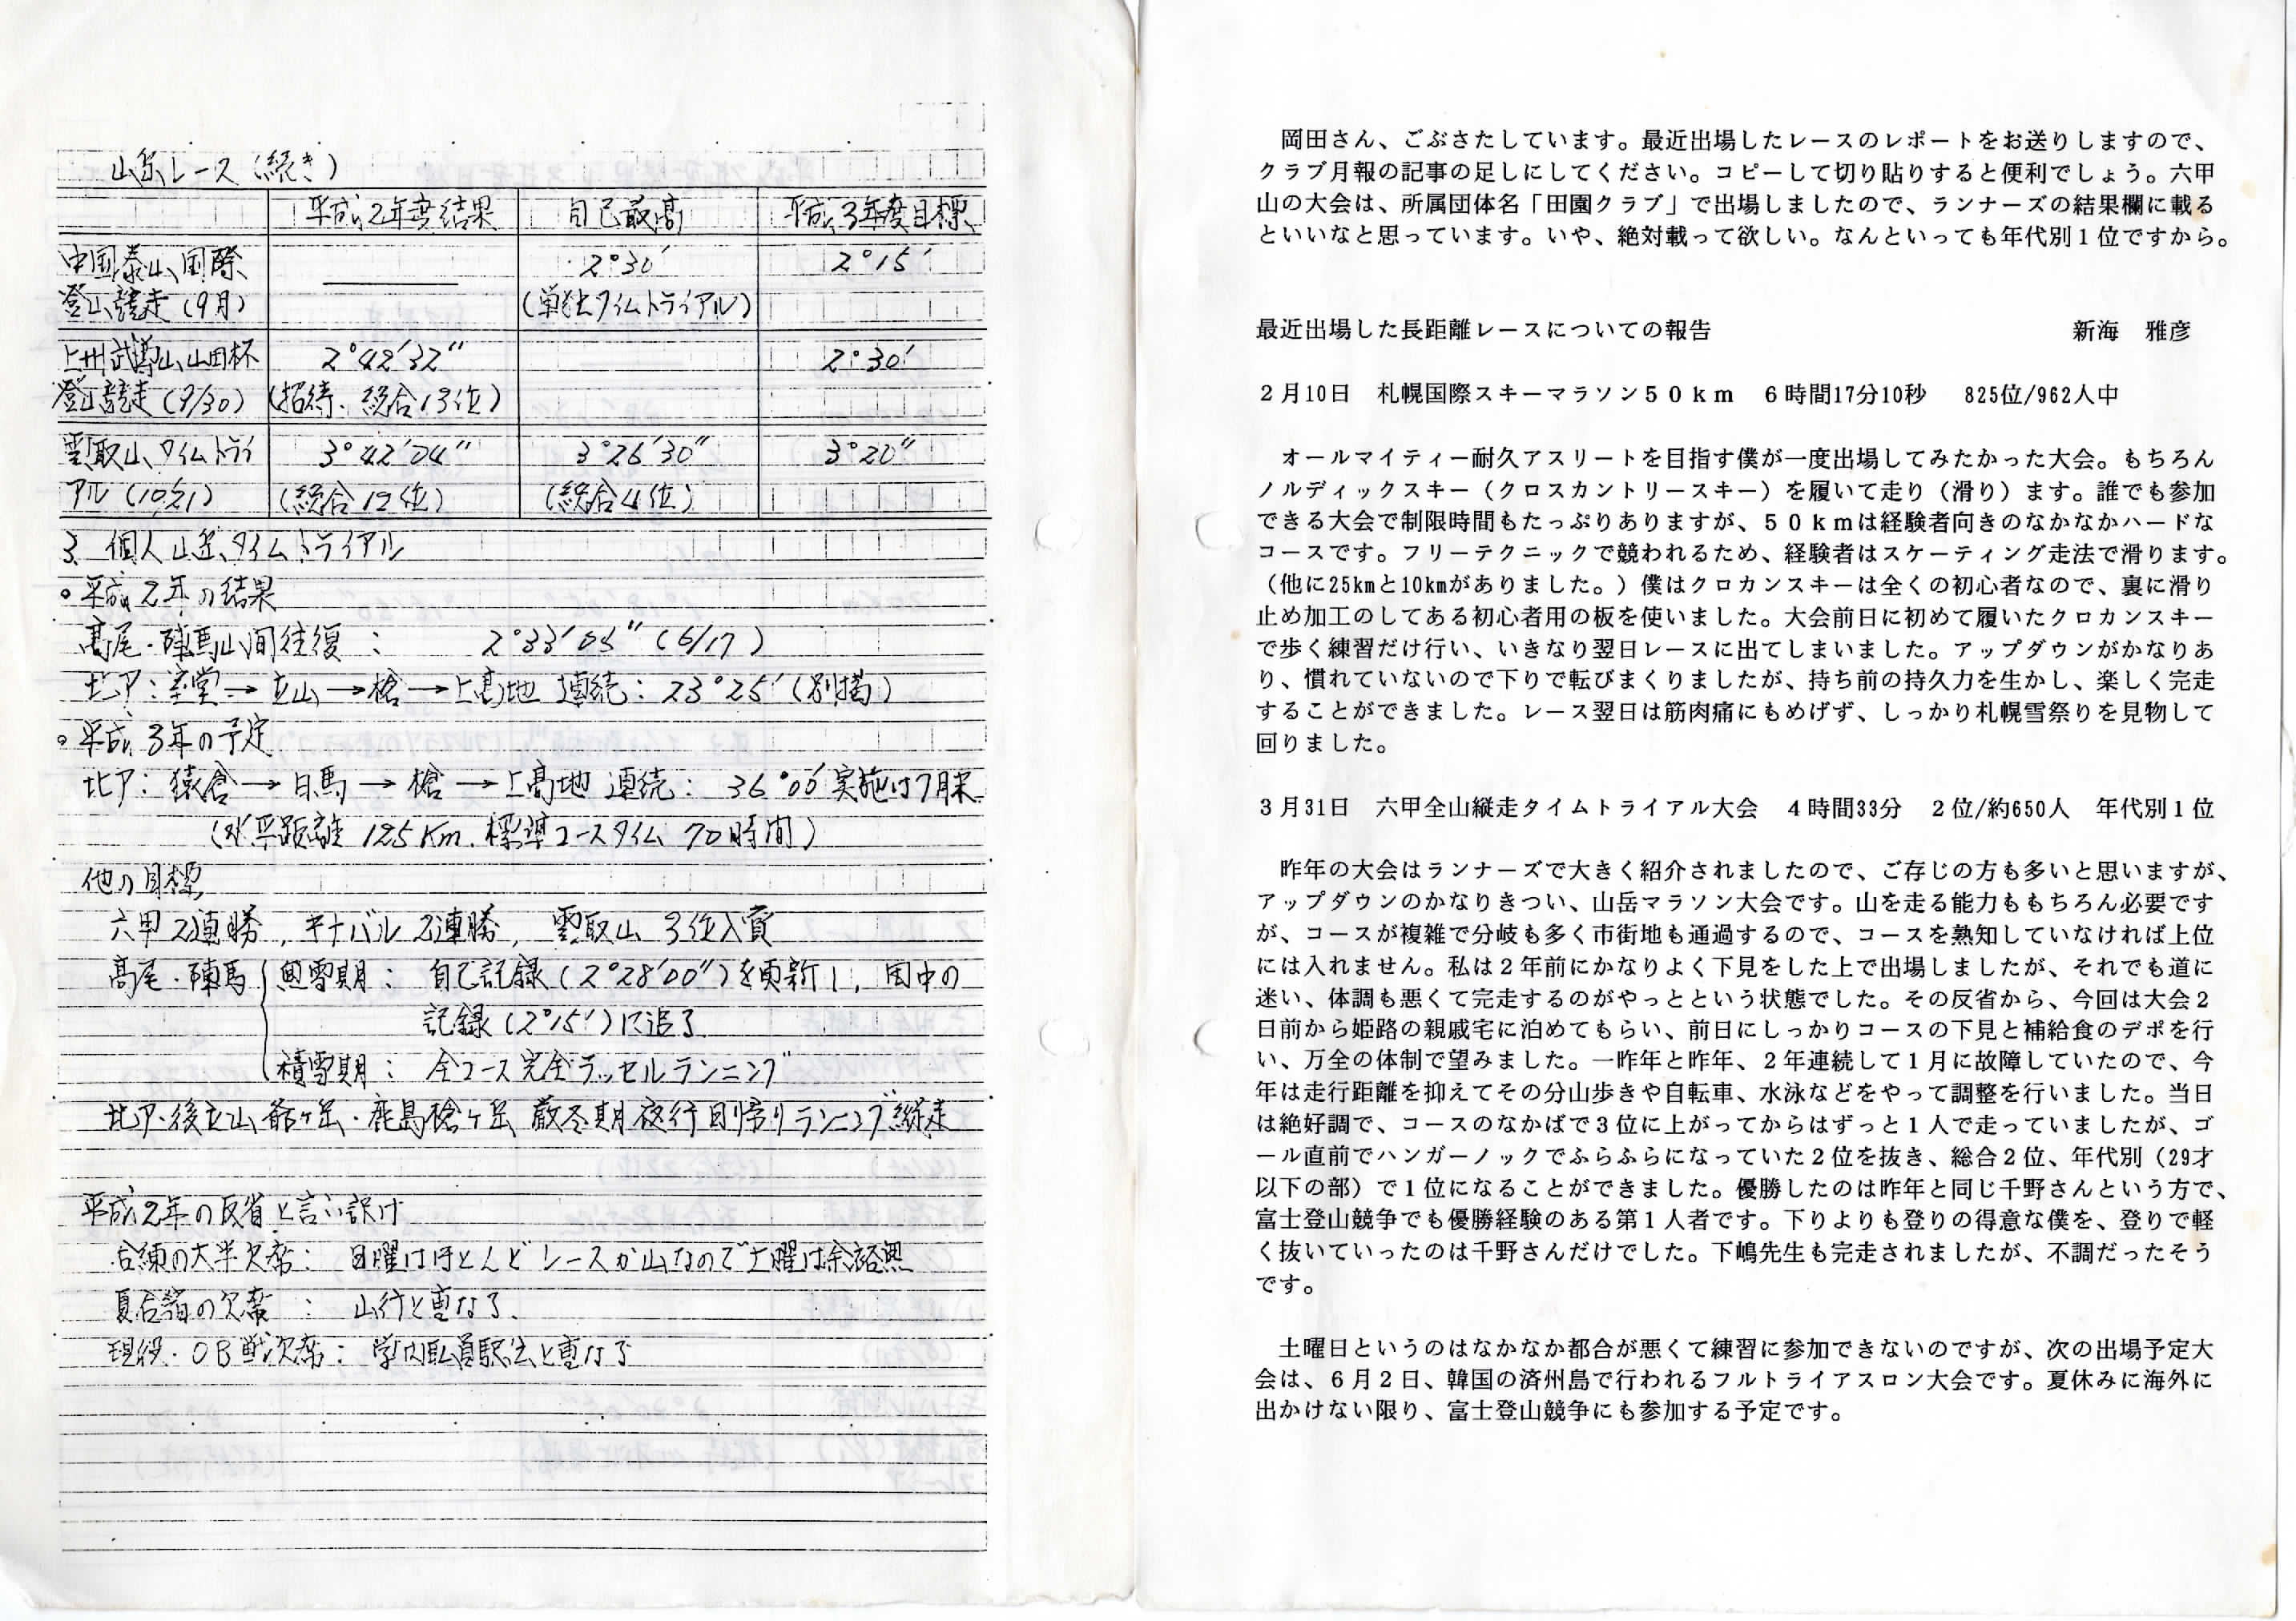 山岳レース(続き)
平成2年度結果 自己最高 平成3年度目標
中国泰山国際 2°30′ 2°15′
登山競走(9月) (単独タイムトライアル)
上州武尊山山田杯 2°42′32″ 2°30′
登山競走(9/30) (招待、総合13位)
雲取山タイムトライ 3°42′04″ 3°26′30″ 3°20″
アル(10/21) (総合12位) (総合4位)
3. 個人山岳タイムトライアル
○平成2年の結果
高尾・陣馬山間往復: 2°33′05″(6/17)
北ア:室堂→立山→槍→上高地 連続:23°25′(別掲)
○平成3年の予定
北ア:猿倉→白馬→槍→上高地 連続:36°00′実施は7月末
(水平距離125Km.標準コースタイム 70時間)
他の目標
六甲2連勝,キナバル2連勝,雲取山3位入賞
高尾・陣馬 無雪期: 自己記録(2°28′00″)を更新し,田中の
記録(2°15′)に迫る
積雪期: 全コース完全ラッセルランニング
北ア・後立山 爺ヶ岳・鹿島槍ヶ岳 厳冬期夜行日帰りランニング縦走
平成2年の反省と言い訳け
合練の大半欠席: 日曜はほとんどレースか山なので土曜は余裕無
夏合宿の欠席: 山行と重なる.
現役・OB戦欠席: 学内職員駅伝と重なる
岡田さん、ごぶさたしています。最近出場したレースのレポートをお送りしますので、
クラブ月報の記事の足しにしてください。コピーして切り貼りすると便利でしょう。六甲
山の大会は、所属団体名「田園クラブ」で出場しましたので、ランナーズの結果欄に載る
といいなと思っています。いや、絶対載って欲しい。なんといっても年代別1位ですから。
最近出場した長距離レースについての報告 新海 雅彦
2月10日 札幌国際スキーマラソン50km 6時間17分10秒 825位/962人中
オールマイティー耐久アスリートを目指す僕が一度出場してみたかった大会。もちろん
ノルディックスキー(クロスカントリースキー)を履いて走り(滑り)ます。誰でも参加
できる大会で制限時間もたっぷりありますが、50kmは経験者向きのなかなかハードな
コースです。フリーテクニックで競われるため、経験者はスケーティング走法で滑ります。
(他に25kmと10kmがありました。)僕はクロカンスキーは全くの初心者なので、裏に滑り
止め加工のしてある初心者用の板を使いました。大会前日に初めて履いたクロカンスキー
で歩く練習だけ行い、いきなり翌日レースに出てしまいました。アップダウンがかなりあ
り、慣れていないので下りで転びまくりましたが、持ち前の持久力を生かし、楽しく完走
することができました。レース翌日は筋肉痛にもめげず、しっかり札幌雪祭りを見物して
回りました。
3月31日 六甲全山縦走タイムトライアル大会 4時間33分 2位/約650人 年代別1位
昨年の大会はランナーズで大きく紹介されましたので、ご存じの方も多いと思いますが、
アップダウンのかなりきつい、山岳マラソン大会です。山を走る能力ももちろん必要です
が、コースが複雑で分岐も多く市街地も通過するので、コースを熟知していなければ上位
には入れません。私は2年前にかなりよく下見をした上で出場しましたが、それでも道に
迷い、体調も悪くて完走するのがやっとという状態でした。その反省から、今回は大会2
日前から姫路の親戚宅に泊めてもらい、前日にしっかりコースの下見と補給食のデポを行
い、万全の体制で望みました。一昨年と昨年、2年連続して1月に故障していたので、今
年は走行距離を抑えてその分山歩きや自転車、水泳などをやって調整を行いました。当日
は絶好調で、コースのなかばで3位に上がってからはずっと1人で走っていましたが、ゴ
ール直前でハンガーノックでふらふらになっていた2位を抜き、総合2位、年代別(29才
以下の部)で1位になることができました。優勝したのは昨年と同じ千野さんという方で、
富士登山競争でも優勝経験のある第1人者です。下りよりも登りの得意な僕を、登りで軽
く抜いていったのは千野さんだけでした。下嶋先生も完走されましたが、不調だったそう
です。
土曜日というのはなかなか都合が悪くて練習に参加できないのですが、次の出場予定大
会は、6月2日、韓国の済州島で行われるフルトライアスロン大会です。夏休みに海外に
出かけない限り、富士登山競争にも参加する予定です。